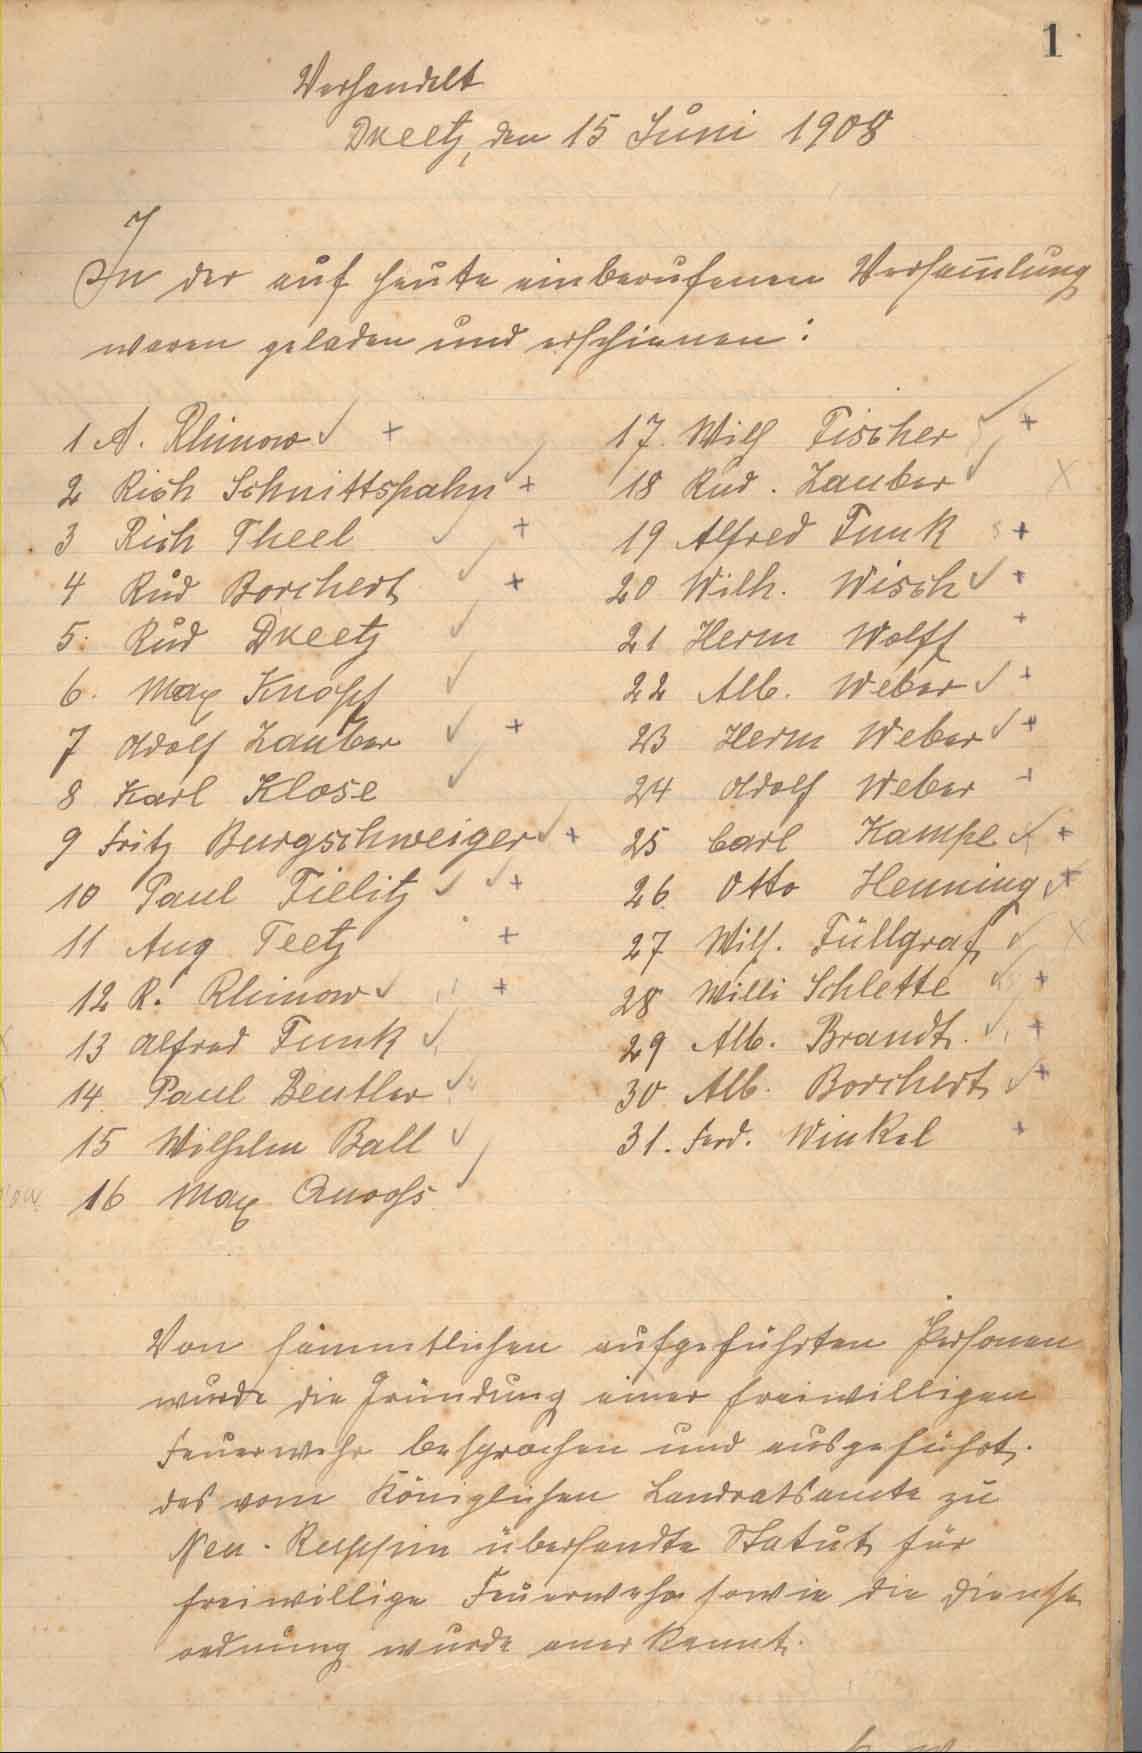 1
Verhandelt
Dreetz, den 15 Juni 1908
In der auf heute einberufenen Versam̅lung
waren geladen und erschienen:
1 A. Rhinow
2 Rich Schnittspahn
3 Rich Theel
4 Rud Borchert
5. Rud Dreetz
6. Max Knopf
7 Adolf Zauber
8 Karl Klose
9 Fritz Burgschweiger
10 Paul Fielitz
11 Aug Teetz
12 R. Rhinow
13 Alfred Funk
14. Paul Beutler
15 Wilhelm Ball
16 Max
17. Wilh Fischer
18 Rud. Zauber
19 Alfred Funk
20 Wilh. Wisch
21 Herm Wolff
22 Alb. Weber
23 Herm Weber
24 Adolf Weber
25 Carl Kampe
26 Otto Henning
27 Wilh. Füllgraf
28 Willi Schlette
29 Alb. Brandt.
30 Alb. Borchert
31. Ferd. Winkel
Von sämmtlichen aufgeführten Personen
wurde die Gründung einer freiwilligen
Feuerwehr besprochen und ausgeführt.
das vom Königlichen Landratsamte zu
Neu-Ruppin übersandte Statut für
freiwillige Feuerwehr sowie die Dienst
ordnung wurde anerkannt.